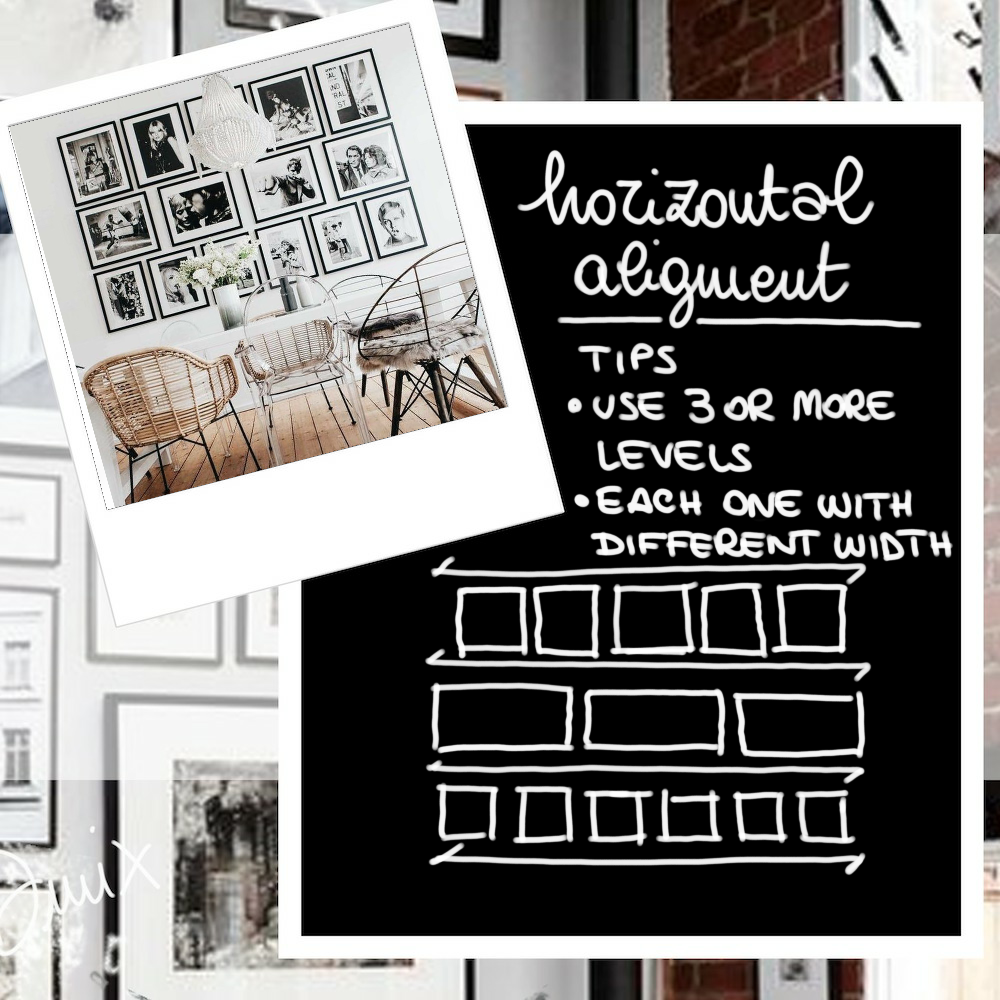 horizontal
aligment
TIPS
• USE 3 OR MORE
LEVELS
• EACH ONE WITH
DIFFERENT WIDTH